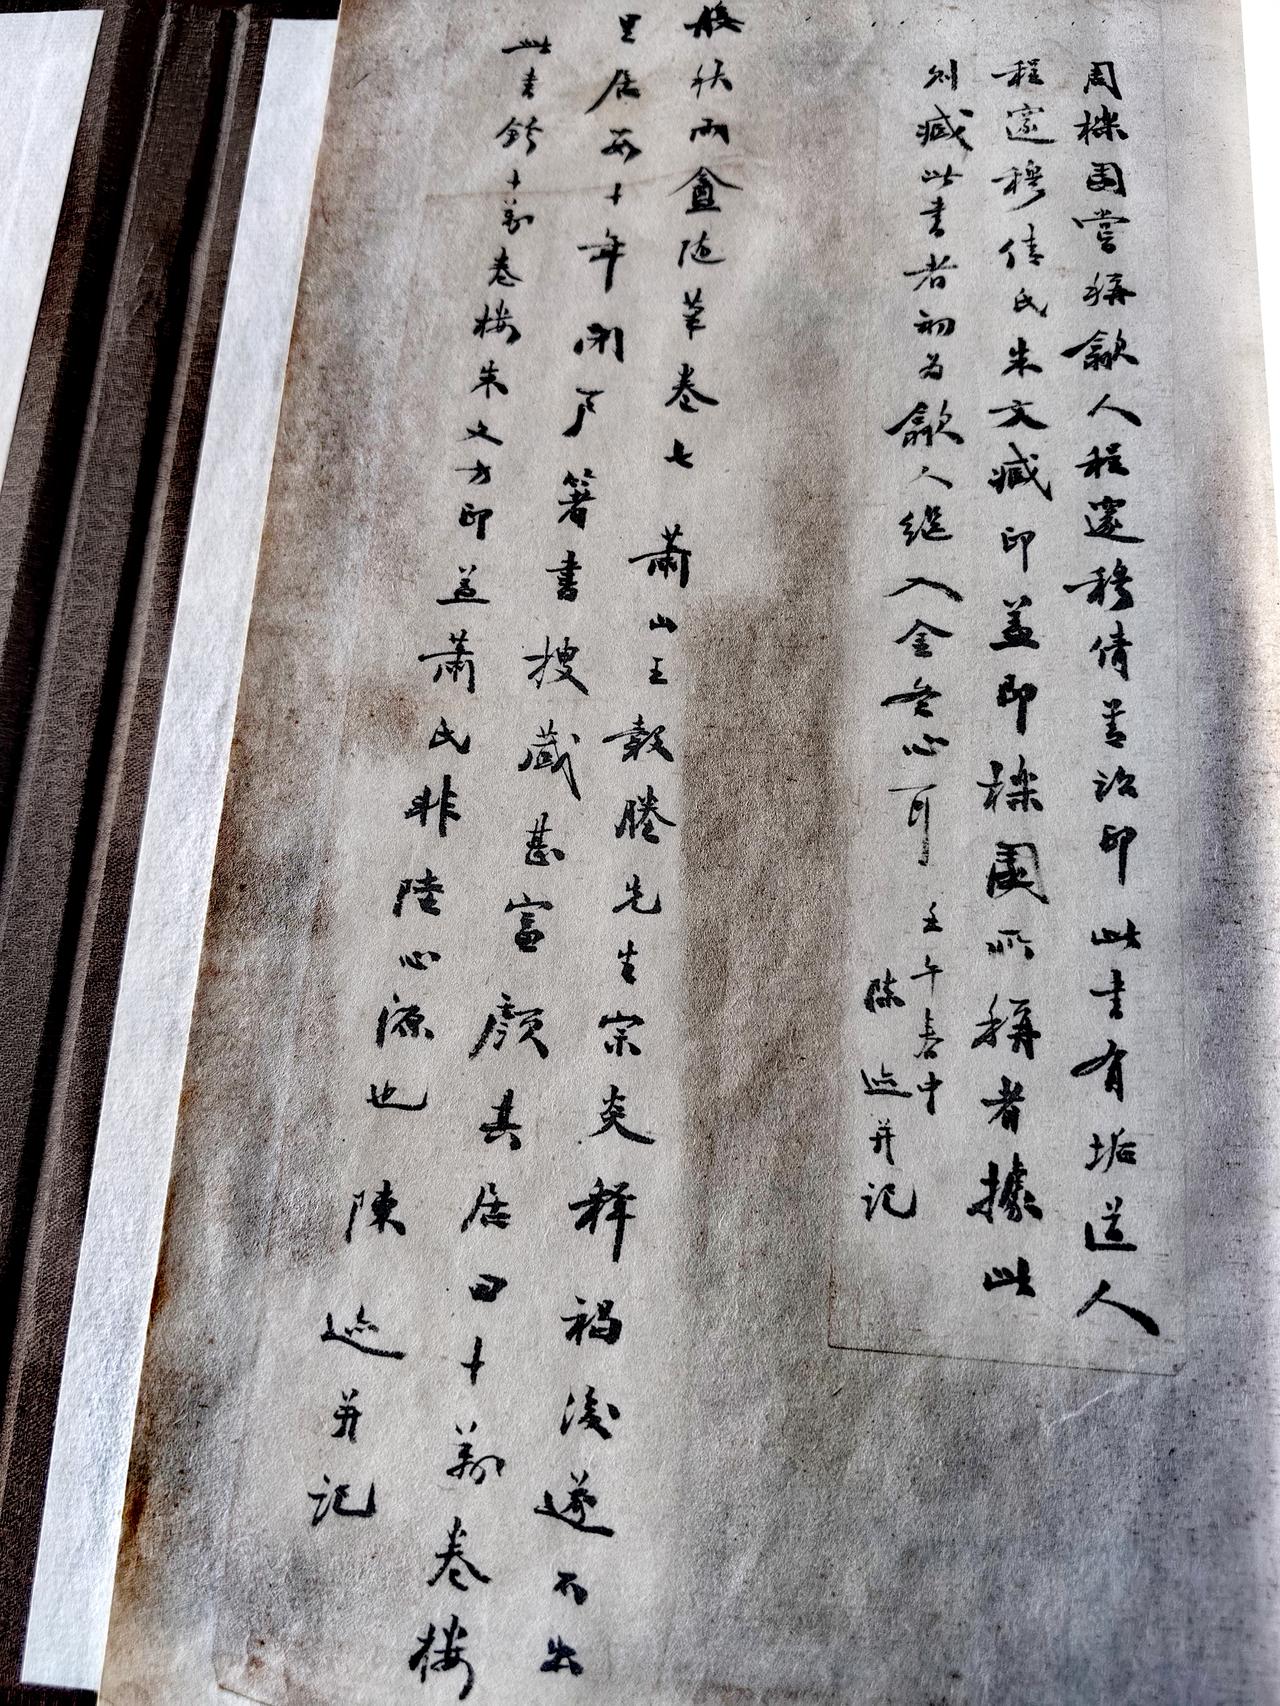 周櫟園嘗稱歙人程邃穆倩善治印此書有垢道人
程邃穆倩氏朱文藏印蓋即櫟園所稱者據此
則藏此書者初為歙人繼入金冬心可
壬午春中
陳 迹并記
般秋兩盦随筆卷七 蕭山王穀塍先生宗炎釋褐後遂不出
里居五十年閉户箸書搜藏甚富顔其居曰十萬卷樓
此書鈐十萬卷樓朱文方印蓋蕭氏非陸心源也 陳 迹并記